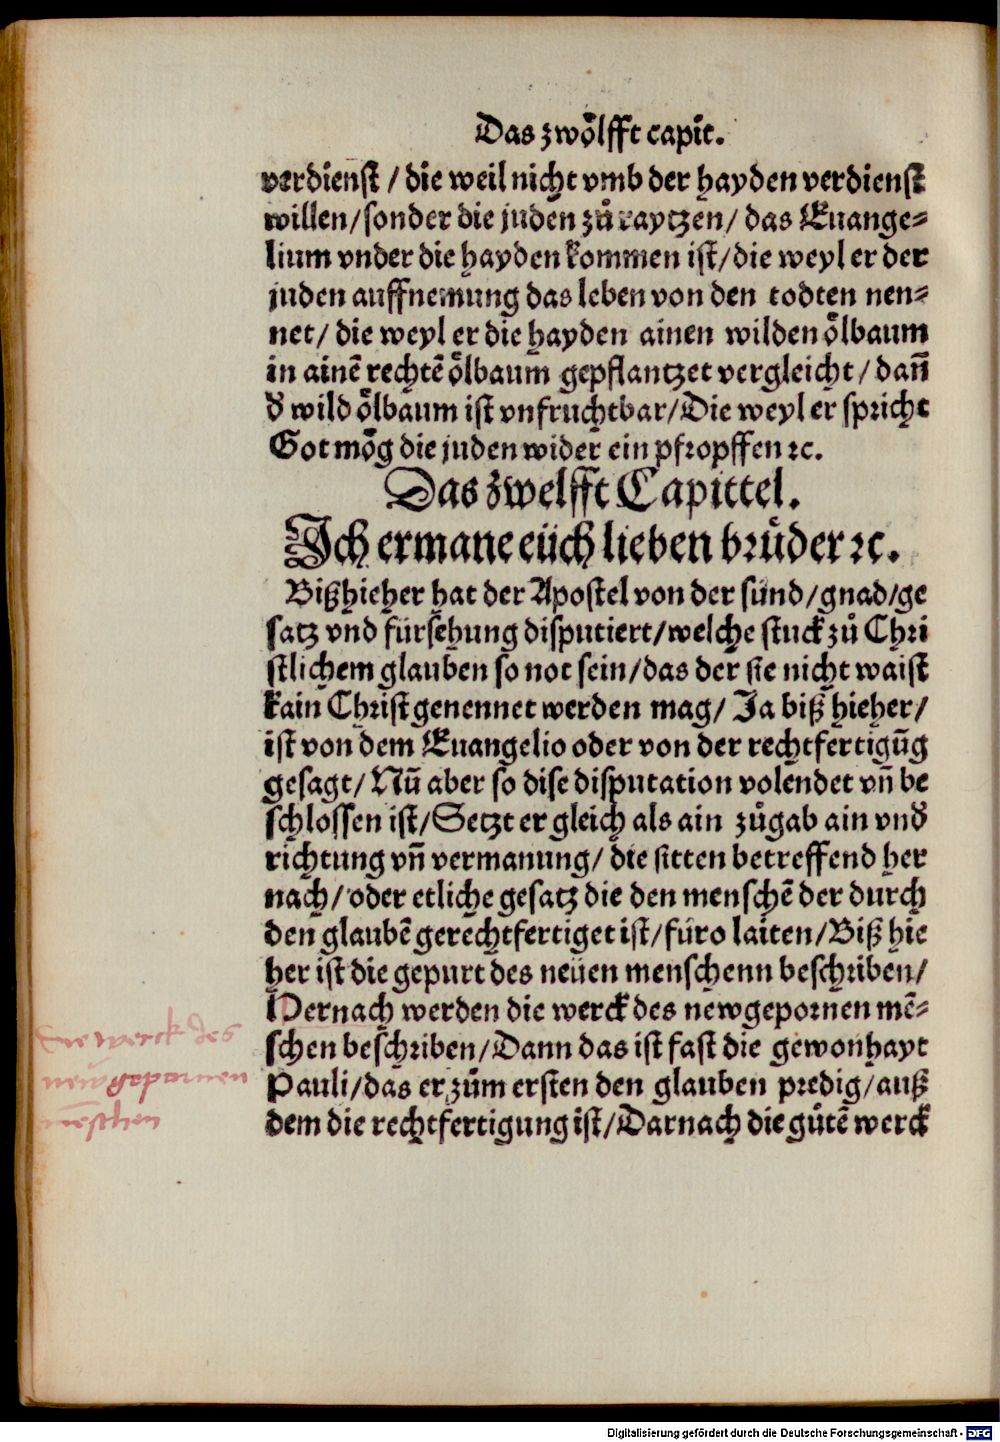 Das zwoͤlfft capit.
verdienst / die weil nicht vmb der hayden verdienst
willen/sonder die juden zuͦ raytzen/ das Euange-
lium vnder die hayden kommen ist/die weyl er der
juden auffnemung das leben von den todten nen-
net/ die weyl er die hayden ainen wilden oͤlbaum
in ainē rechtē oͤlbaum gepflantzet vergleicht/ dañ
đ wild oͤlbaum ist vnfruchtbar/Die weyl er spricht
Got moͤg die juden wider ein pfropffen ꝛc.
Das zwelfft Capittel.
Ich ermane eüch lieben bruͤder ꝛc.
Bißhieher hat der Apostel von der sünd/gnad/ge
satz vnd fürsehung disputiert/welche stuck zuͦ Chri
stlichem glauben so not sein/das der sie nicht waist
kain Christ genennet werden mag/ Ja biß hieher/
ist von dem Euangelio oder von der rechtfertigūg
gesagt/ Nū aber so dise disputation volendet vñ be
schlossen ist/Setzt er gleich als ain zuͦgab ain vnđ
richtung vñ vermanung/ die sitten betreffend her
nach/ oder etliche gesatz die den menschē der durch
den glaubē gerechtfertiget ist/füro laiten/Biß hie
her ist die gepurt des neüen menschenn beschriben/
Hernach werden die werck des newgepornen mē-
schen beschriben/Dann das ist fast die gewonhayt
Pauli/das er zuͦm ersten den glauben predig/auß
dem die rechtfertigung ist/Darnach die guͦtē werck
Die werck des
newgepornen
mēschen
Digitalisierung gefördert durch die Deutsche Forschungsgemeinschaft - DFG